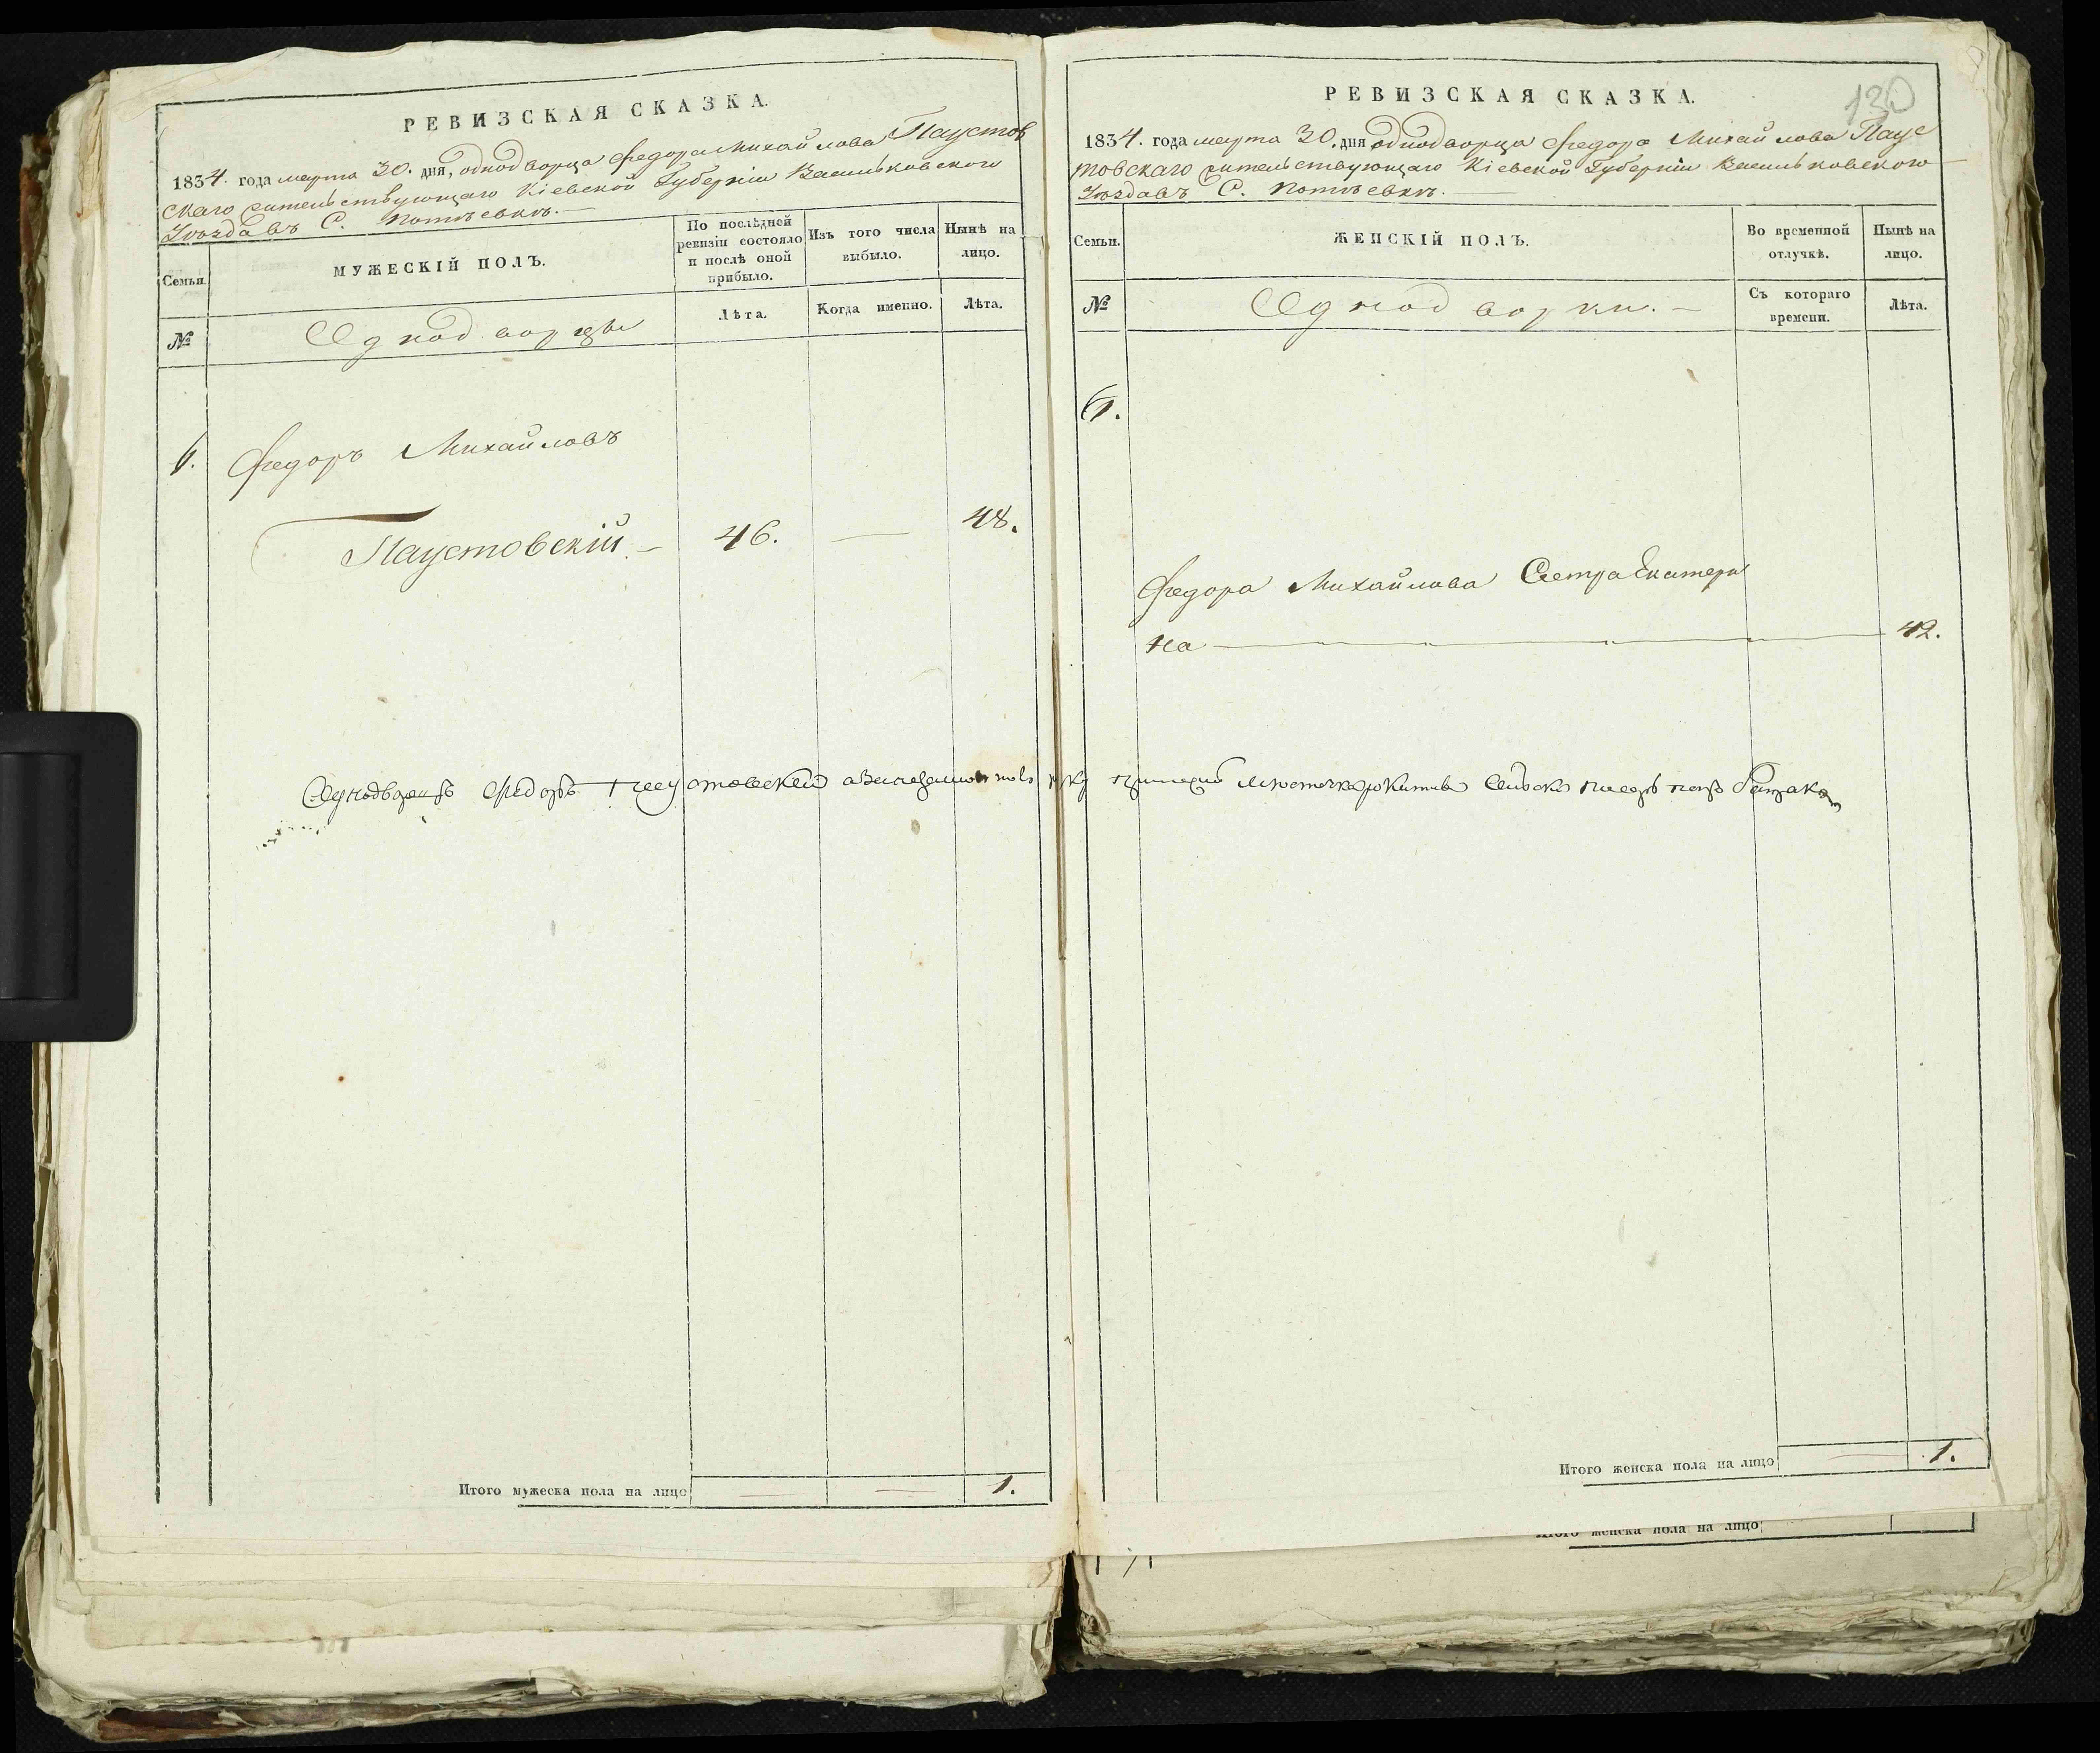 РЕВИЗСКАЯ СКАЗКА.
1834. года марта 30. дня, однодворца Федора Михайлова Паустов
скаго жительствующаго Кіевской Губерніи Васильковского
Уѣзда въ С. Потѣевкѣ.
Семьи.
МУЖЕСКІЙ ПОЛЪ.
По послѣдней
ревизіи состояло
и послѣ оной
прибыло.
Изъ того числа
выбыло.
Нынѣ на
лицо.
№
Однодворцы
Лѣта.
Когда именно.
Лѣта.
1. Федоръ Михайловъ
Паустовскій — 46. — 48.
Итого мужеска пола на лицо — — 1.
130
РЕВИЗСКАЯ СКАЗКА.
1834. года марта 30. дня однодворца Федора Михайлова Паус
товскаго жительствующаго Кіевской Губерніи Васильковского
Уѣзда въ С. Потѣевкѣ.
Семьи.
ЖЕНСКІЙ ПОЛЪ.
Во временной
отлучкѣ.
Нынѣ на
лицо.
№
Однодворки. —
Съ котораго
времени.
Лѣта.
1.
Федора Михайлова Сестра Екатери
на — 42.
Однодворецъ Федоръ Паустовскей
Итого женска пола на лицо — 1.
Итого женска пола на лицо